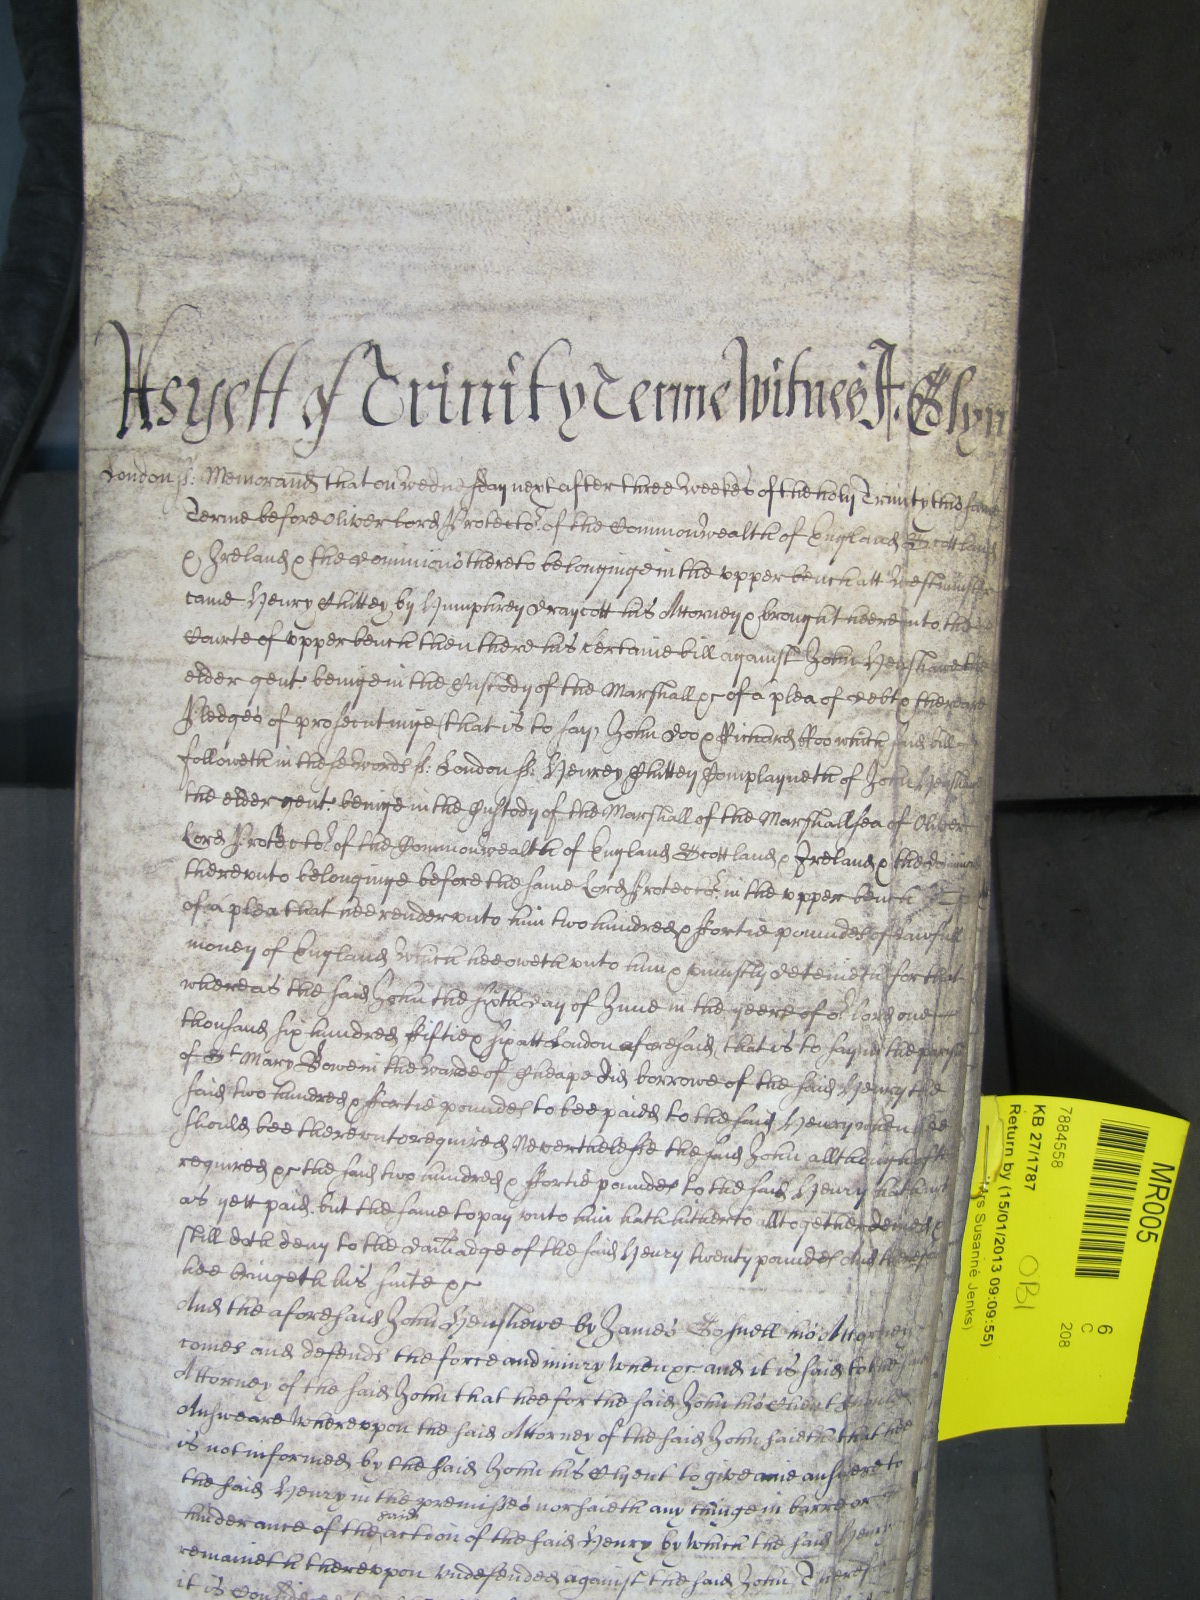 As yett of Trinity Terme Witnes J: Glyn
London ss: Memorand that on Wednesday next after three weekes of the holy Trinity this same
Terme before Oliver Lord Protector of the Commonwealth of England Scotland
& Ireland & the dominions thereto belonginge in the upper bench att Westminster
came Henry Chittey by Humphrey Draycott his Attorney & brought heere into the
Courte of upper bench then there his certaine bill against John Henshawe the
elder gent beinge in the Custody of the Marshall &c of a plea of debt & there are
Pledges of prosecutinge that is to say, John Doo & Richard Roo which said bill
followeth in these words ss: London ss: Henrey Chittey Complayneth of John Henshawe
the elder gent beinge in the Custody of the Marshall of the Marshallsea of Oliver
Lord Protector of the Commonwealth of England Scotland & Ireland & the dominions
thereunto belonginge before the same Lord Protector in the upper bench
of a plea that hee render unto him two hundred & Fortie poundes of lawfull
money of England which hee oweth unto him & uniustly deteineth for that
whereas the said John the sixth day of June in the yeere of or Lord one
thousand six hundred Fiftie & six att London aforesaid that is to say in the parish
of St Mary Bowe in the warde of Cheape did borrowe of the said Henry the
said two hundred & Fortie poundes to bee paid to the said Henry when hee
should bee thereunto required Neverthelesse the said John allthough often
required &c the said two hundred & Fortie poundes to the said Henry hath not
as yett paid. but the same to pay unto him hath hitherto alltogether denied &
still doth deny to the damadge of the said Henry twenty poundes And therefore
hee bringeth his suite &c
And the aforesaid John Henshawe by James Gosnell his Attorney
comes and defends the force and iniury when &c and it is said to the said
Attorney of the said John that hee for the said John his Client should
Answeare whereupon the said Attorney of the said John saieth that hee
is not informed by the said John his Clyent to give anie answere to
the said Henry in the premisses nor saieth any thinge in barre or
hinderance of the said action of the said Henry by which the said Henry
remaineth thereupon undefended against the said John Therefore
it is Considered
MR005
6
C
208
7884558
KB 27/1787
OBJ
Return by (15/01/2013 09:09:55)
Susanne Jenks)